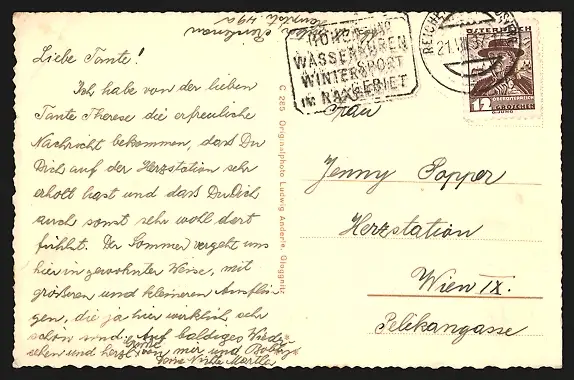 Liebe Tante!
Ich habe von der lieben
Tante Therese die erfreuliche
Nachricht bekommen, dass Du
Dich auf der Herzstation sehr
erholt hast und dass Du Dich
auch sonst sehr wohl dort
fühlst. Der Sommer vergeht uns
hier in gewohnter Weise, mit
größeren und kleineren Ausflü-
gen, die ja hier wirklich sehr
schön sind. Auf baldiges Wieder-
sehen und herzl. von mir und
Deine Nichte Martha
C 285 Originalphoto Ludwig Anderle, Gloggnitz
HÖHENLUFT
WASSERKUREN
WINTERSPORT
im RAXGEBIET
REICHENAU
21.VIII.
ÖSTERREICH
12
OBERÖSTERREICH
GROSCHEN
Frau
Jenny Popper
Herzstation
Wien IX.
Pelikangasse